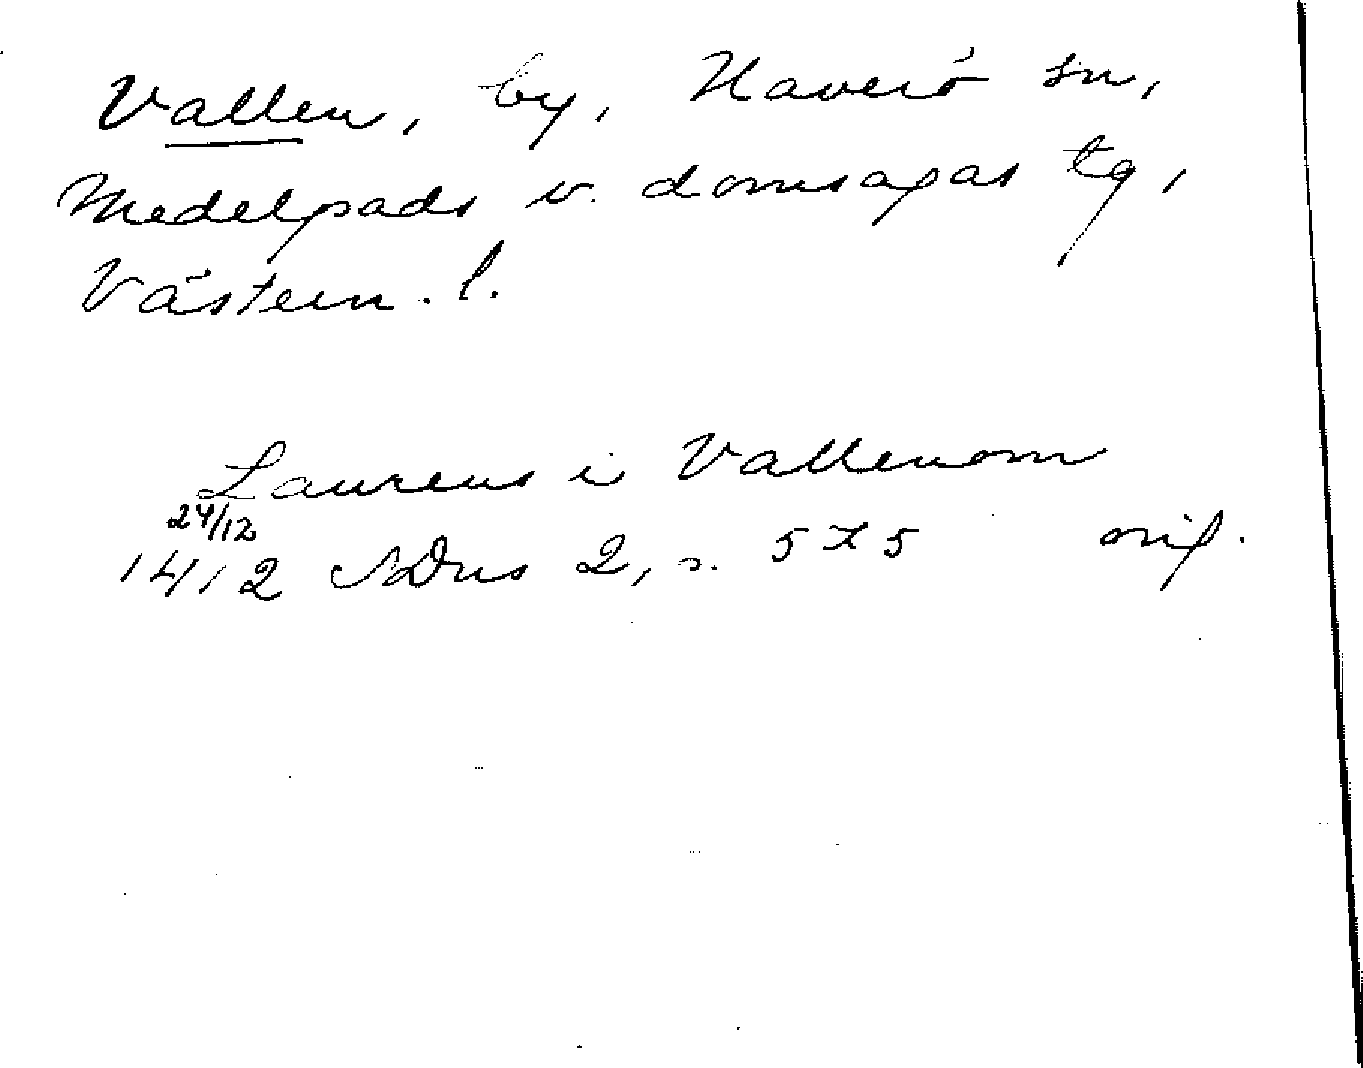 Vallen, by, Haverö sn,
Medelpads v. domsagas tg,
Västern. l.
Laurens i Vallenom
24/12
1412 SDns 2, s. 575 orig.